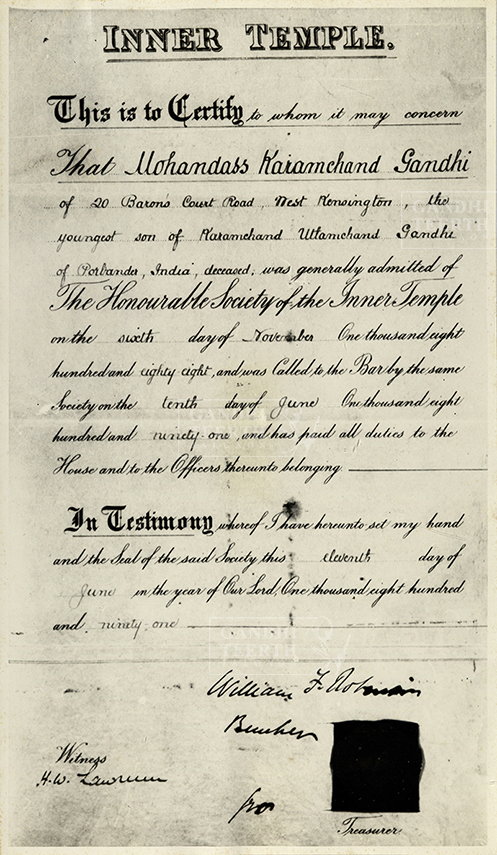 INNER TEMPLE.
This is to Certify to whom it may concern
That Mohandass Karamchand Gandhi
of 20 Baron's Court Road, West Kensington, the
youngest son of Karamchand Uttamchand Gandhi
of Porbandar, India, deceased, was generally admitted of
The Honourable Society of the Inner Temple
on the sixth day of November One thousand eight
hundred and eighty eight, and was Called to the Bar by the same
Society on the tenth day of June One thousand eight
hundred and ninety-one, and has paid all duties to the
House and to the Officers thereunto belonging.
In Testimony whereof I have hereunto set my hand
and the Seal of the said Society this eleventh day of
June in the year of Our Lord, One thousand eight hundred
and ninety-one
William F. Robinson
Bencher
Witness
H. W. Lawrence
for
Treasurer